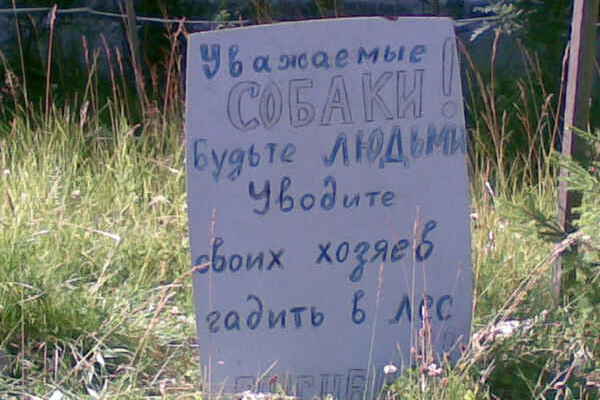 Уважаемые
СОБАКИ!
Будьте ЛЮДЬМИ
Уводите
своих хозяев
гадить в лес